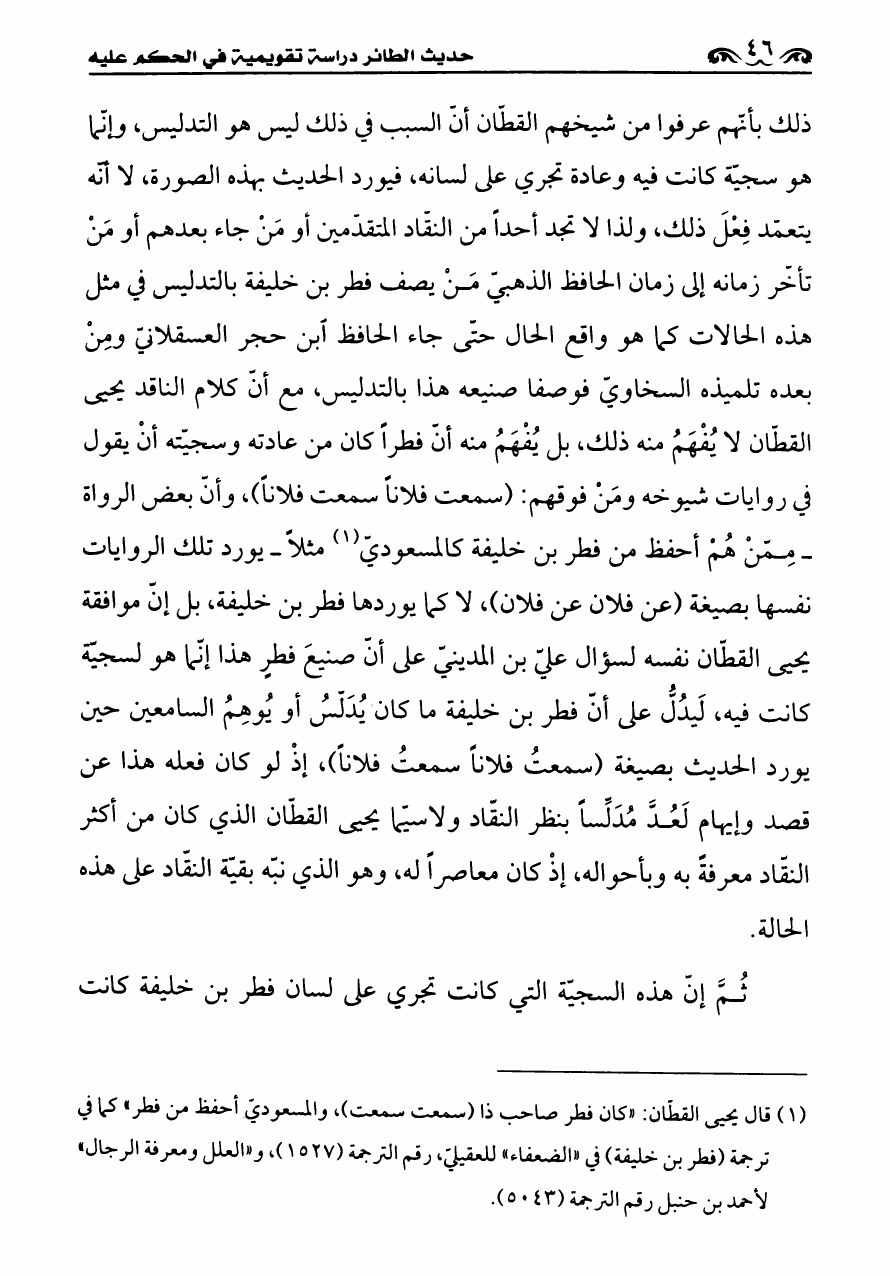 ٤٦
حديث الطائر دراسة تقويمية في الحكم عليه
ذلك بأنّهم عرفوا من شيخهم القطّان أنّ السبب في ذلك ليس هو التدليس، وإنّما
هو سجيّة كانت فيه وعادة تجري على لسانه، فيورد الحديث بهذه الصورة، لا أنّه
يتعمّد فِعْلَ ذلك، ولذا لا تجد أحداً من النقّاد المتقدّمين أو مَنْ جاء بعدهم أو مَنْ
تأخّر زمانه إلى زمان الحافظ الذهبيّ مَـنْ يصف فطر بن خليفة بالتدليس في مثل
هذه الحالات كما هو واقع الحال حتّى جاء الحافظ ٱبن حجر العسقلانيّ ومِنْ
بعده تلميذه السخاويّ فوصفا صنيعه هذا بالتدليس، مع أنّ كلام الناقد يحيى
القطّان لا يُفْهَمُ منه ذلك، بل يُفْهَمُ منه أنّ فطراً كان من عادته وسجيّته أنْ يقول
في روايات شيوخه ومَنْ فوقهم: (سمعت فلاناً سمعت فلاناً)، وأنّ بعض الرواة
ـ مِـمّنْ هُمْ أحفظ من فطر بن خليفة كالمسعوديّ(١) مثلاً ـ يورد تلك الروايات
نفسها بصيغة (عن فلان عن فلان)، لا كما يوردها فطر بن خليفة، بل إنّ موافقة
يحيى القطّان نفسه لسؤال عليّ بن المدينيّ على أنّ صنيعَ فطرٍ هذا إنّما هو لسجيّة
كانت فيه، لَيدُلُّ على أنّ فطر بن خليفة ما كان يُدَلّسُ أو يُوهِمُ السامعين حين
يورد الحديث بصيغة (سمعتُ فلاناً سمعتُ فلاناً)، إذْ لو كان فعله هذا عن
قصد وإيهام لَعُـدَّ مُدَلِّساً بنظر النقّاد ولاسيّما يحيى القطّان الذي كان من أكثر
النقّاد معرفةً به وبأحواله، إذْ كان معاصراً له، وهو الذي نبّه بقيّة النقّاد على هذه
الحالة.
ثُـمَّ إنّ هذه السجيّة التي كانت تجري على لسان فطر بن خليفة كانت
(١) قال يحيى القطّان: «كان فطر صاحب ذا (سمعت سمعت)، والمسعوديّ أحفظ من فطر» كما في
ترجمة (فطر بن خليفة) في «الضعفاء» للعقيليّ، رقم الترجمة (١٥٢٧)، و«العلل ومعرفة الرجال»
لأحمد بن حنبل رقم الترجمة (٥٠٤٣).